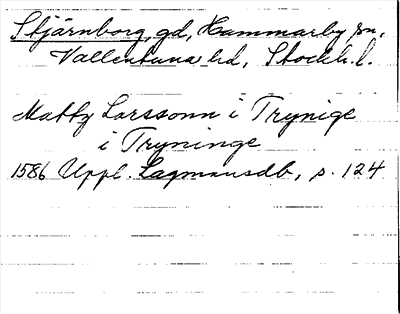 Stjärnborg, gd, Hammarby sn,
Vallentuna hd, Stockh. l.
Matts Larssonn i Trynige
i Tryninge
1586 Uppl. Lagmansdb, s. 124